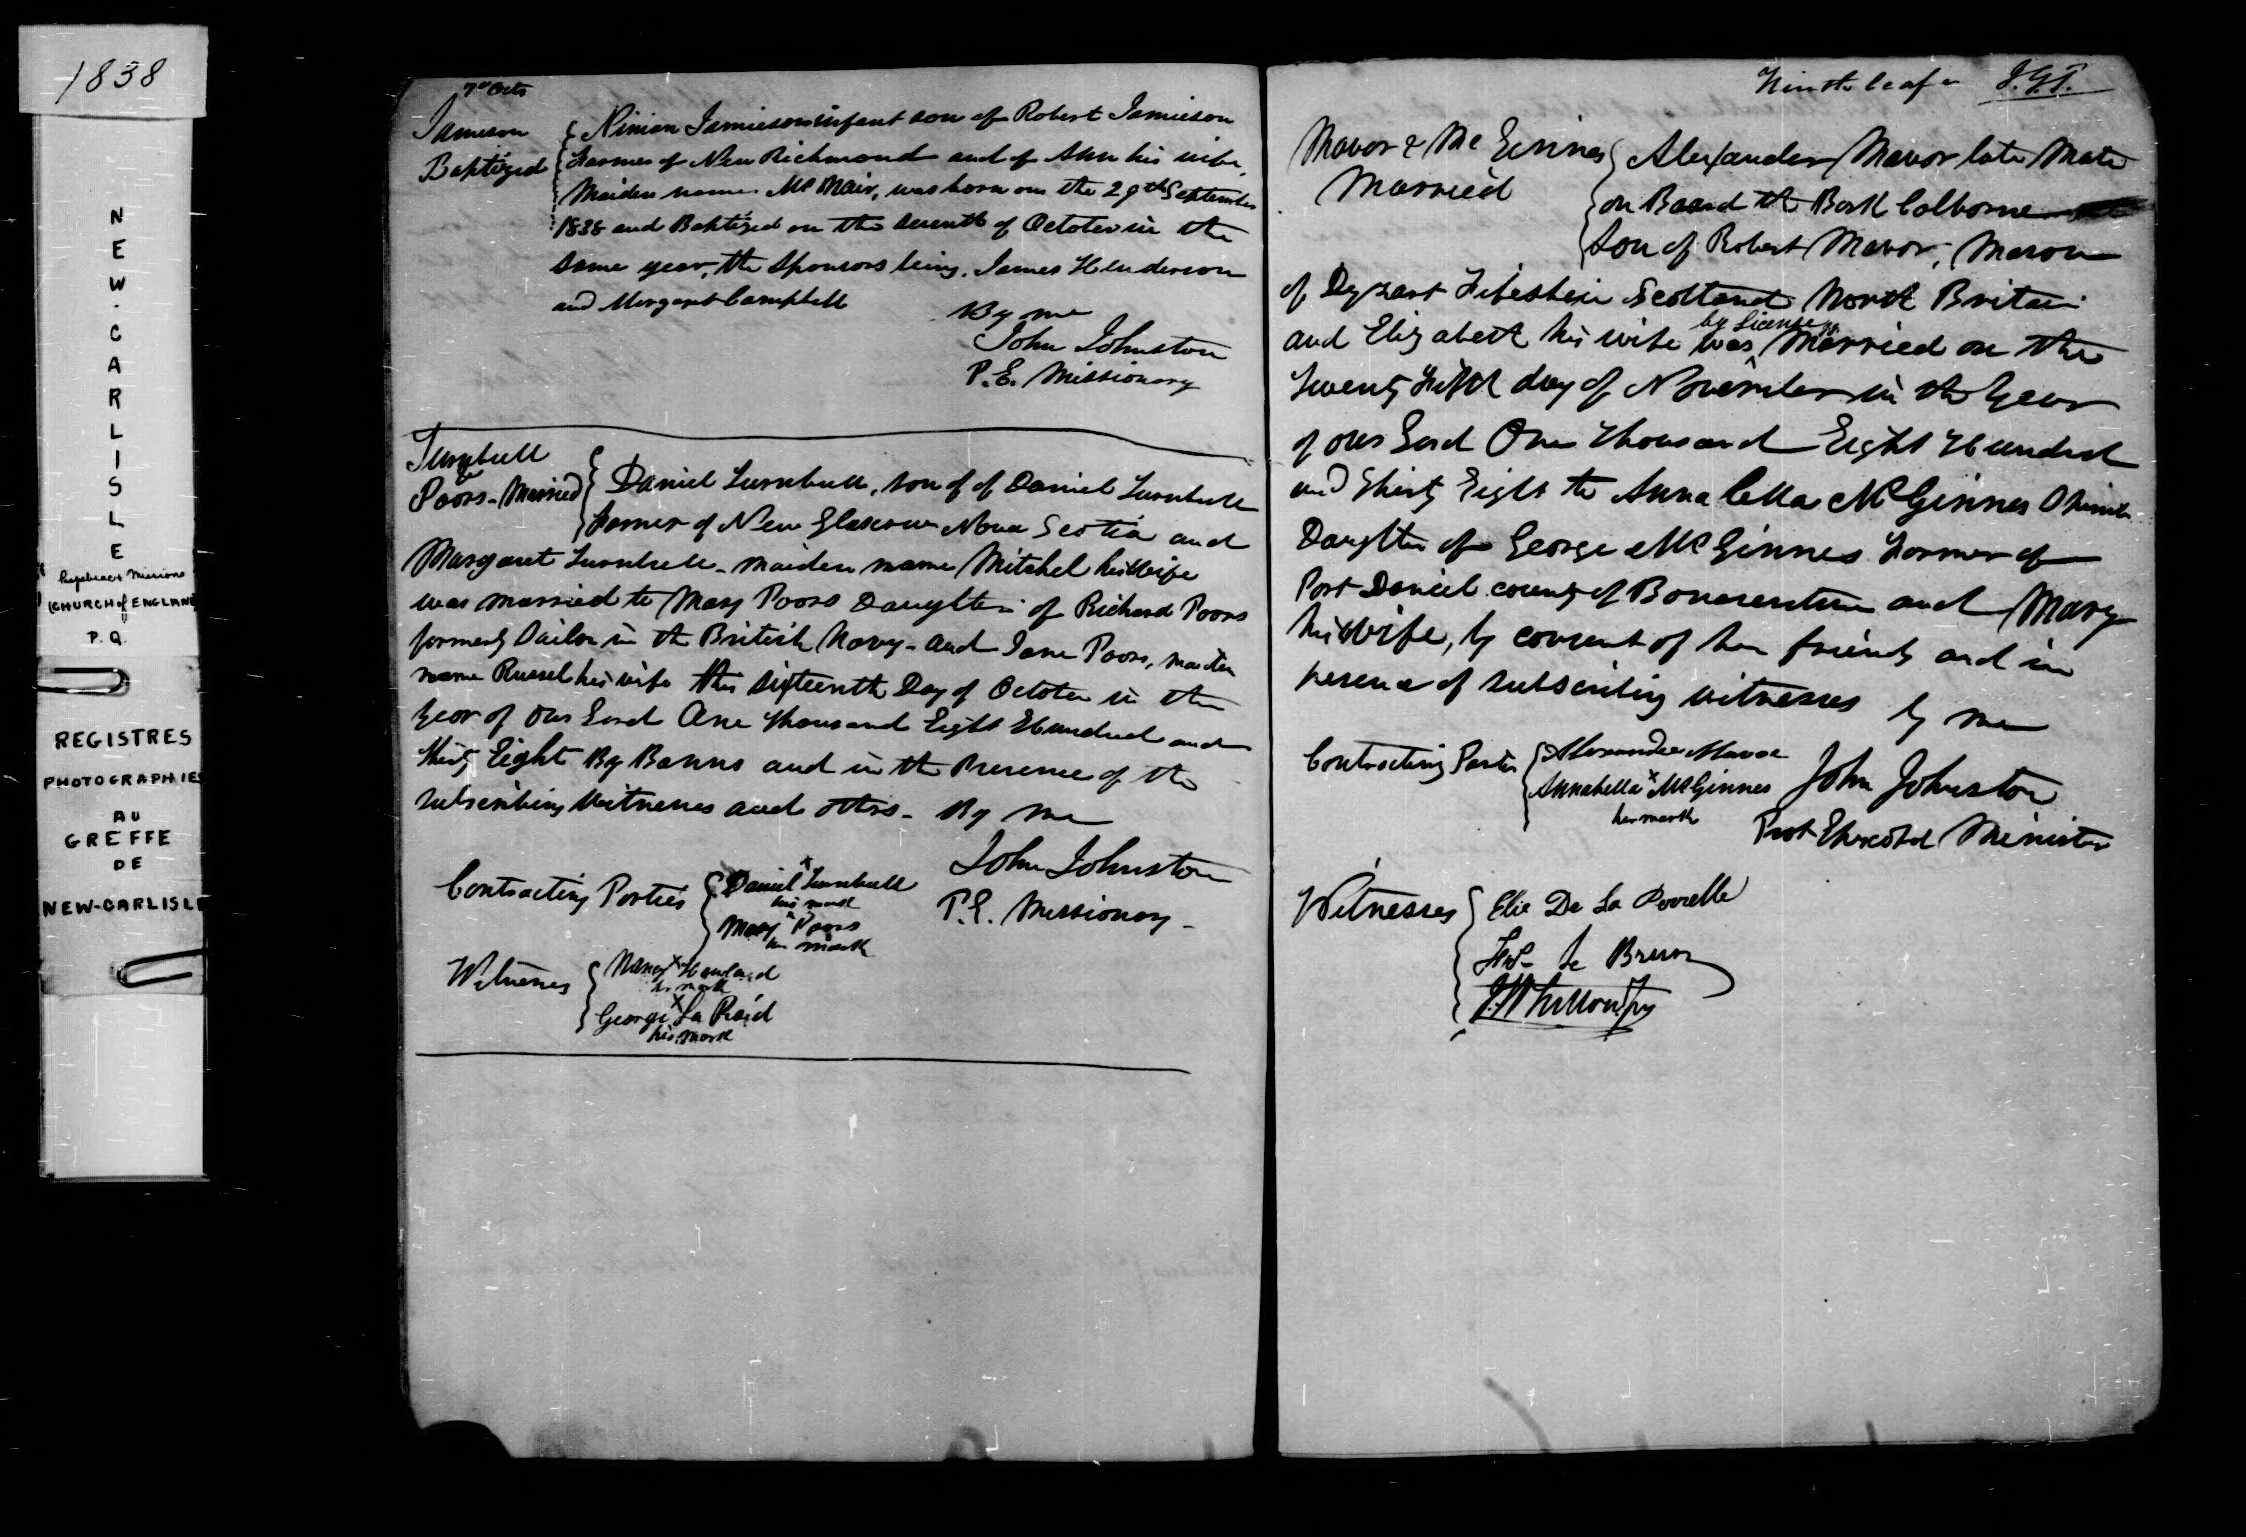 1838
NEW-CARLISLE
Missions
(CHURCH of ENGLAND
P.Q.
REGISTRES
PHOTOGRAPHIES
AU
GREFFE
DE
NEW-CARLISLE
7th Octr
Jameson
Baptized
Ninian Jamieson infant son of Robert Jamieson
Farmer of New Richmond and of Ann his wife,
Maiden name McNair, was born on the 29th September
1838 and Baptized on the seventh of October in the
same year, the Sponsors being, James Henderson
and Margaret Campbell
By me
John Johnston
P.E. Missionary
Turnbull
&
Poors - Married
Daniel Turnbull, son of of Daniel Turnbull
Farmer of New Glascow Nova Scotia and
Margaret Turnbull - maiden name Mitchel his Wife
was married to Mary Poors Daughter of Richard Poors
formerly Sailor in the British Navy - and Jane Poors, maiden
name Russel his wife this sixteenth Day of October in the
Year of our Lord One thousand Eight Hundred and
thirty Eight By Banns and in the Presence of the
subscribing Witnesses and others - By me
John Johnston
P.E. Missionary -
Contracting Parties
Daniel x Turnbull
his mark
Mary x Poors
her mark
Witnesses
Nancy x
mark
George x La Raid
his mark
Ninth leaf J.G.T.
Mavor & McGinnes
Married
Alexander Mavor late Mate
on Board the Bark Colborne
son of Robert Mavor, Mason
of Dyzart Fifeshire Scotland North Britain
and Elizabeth his wife was by License Married on the
twenty Fifth day of November in the Year
of our Lord One thousand Eight Hundred
and thirty Eight to Anna Bella McGinnes
Daughter of George McGinnes Farmer of
Port Daniel county of Bonaventure and Mary
his Wife, by consent of her friends and in
presence of subscribing witnesses by me
Contracting Parties
Alexander Mavor
Annabella x McGinnes
her mark
John Johnston
Prot Episcopal Minister
Witnesses
Elie De La Perrelle
Le Brun